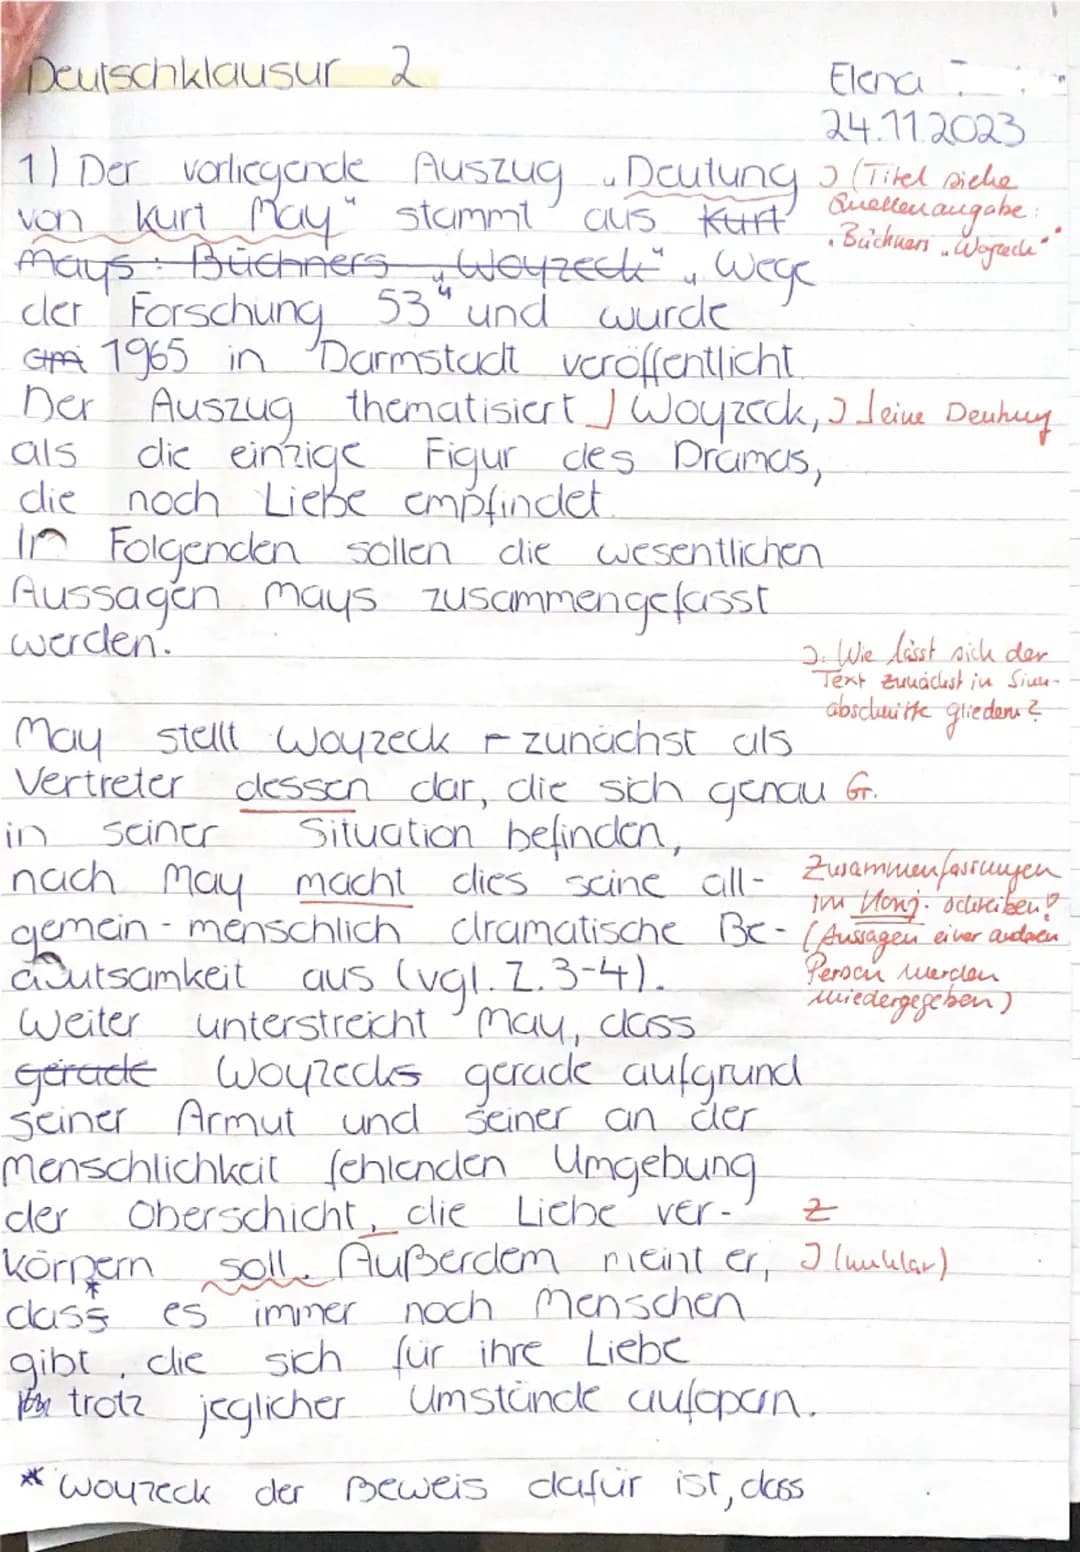 Deutschklausur 2
Elena
24.11.2023
1) Der vorliegende Auszug „Deutung
von Kurt May" stammt aus Kurt
Mays: Büchners „Woyzeck", „Wege
der Forschung 53" und wurde
1965 in Darmstadt veröffentlicht.
Der Auszug thematisiert Woyzeck,
als die einzige Figur des Dramas,
die noch Liebe empfindet.
Im Folgenden sollen die wesentlichen
Aussagen Mays zusammengefasst
werden.
May stellt Woyzeck zunächst als
Vertreter dessen dar, die sich genau
in seiner Situation befinden,
nach May macht dies seine all-
gemein-menschlich dramatische Be-
deutsamkeit aus (vgl. Z. 3-4).
Weiter unterstreicht May, dass
gerade Woyzecks gerade aufgrund
seiner Armut und seiner an der
Menschlichkeit fehlenden Umgebung
der Oberschicht, die Liebe ver-
körpern soll. Außerdem meint er,
dass* es immer noch Menschen
gibt, die sich für ihre Liebe
trotz jeglicher Umstände aufopern.
* Woyzeck der Beweis dafür ist, dass
(Titel siehe
Quellenangabe:
„Büchners „Woyzeck""
seine Deutung
Wie lässt sich der
Text zunächst in Sinn-
abschnitte gliedern?
Gr.
Zusammenfassungen
im Konj. schreiben!
(Aussagen einer anderen
Person werden
wiedergegeben)
Z
(unklar)